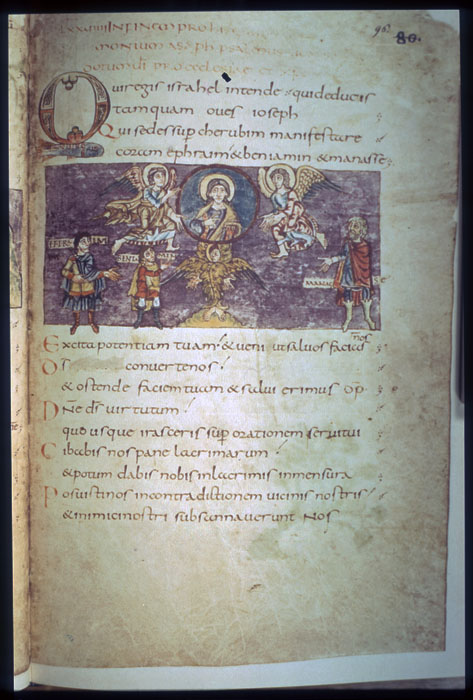 96
80.
LXXVIIII IN FINEM PRO HIS
MONIUM ASAPH PSAL
Qui regis israhel intende & qui deducis
tamquam oves ioseph
Qui sedes sup cherubim manifestare
coram ephraim & beniamin & manasse
Excita potentiam tuam & veni ut salvos facias
nos
Ds converte nos
& ostende faciem tuam & salvi erimus
Dne ds virtutum
quo usque irasceris sup orationem servi tui
Cibabis nos pane lacrimarum
& potum dabis nobis in lacrimis in mensura
Posuisti nos in contradictionem vicinis nostris
& inimici nostri subsannaverunt nos